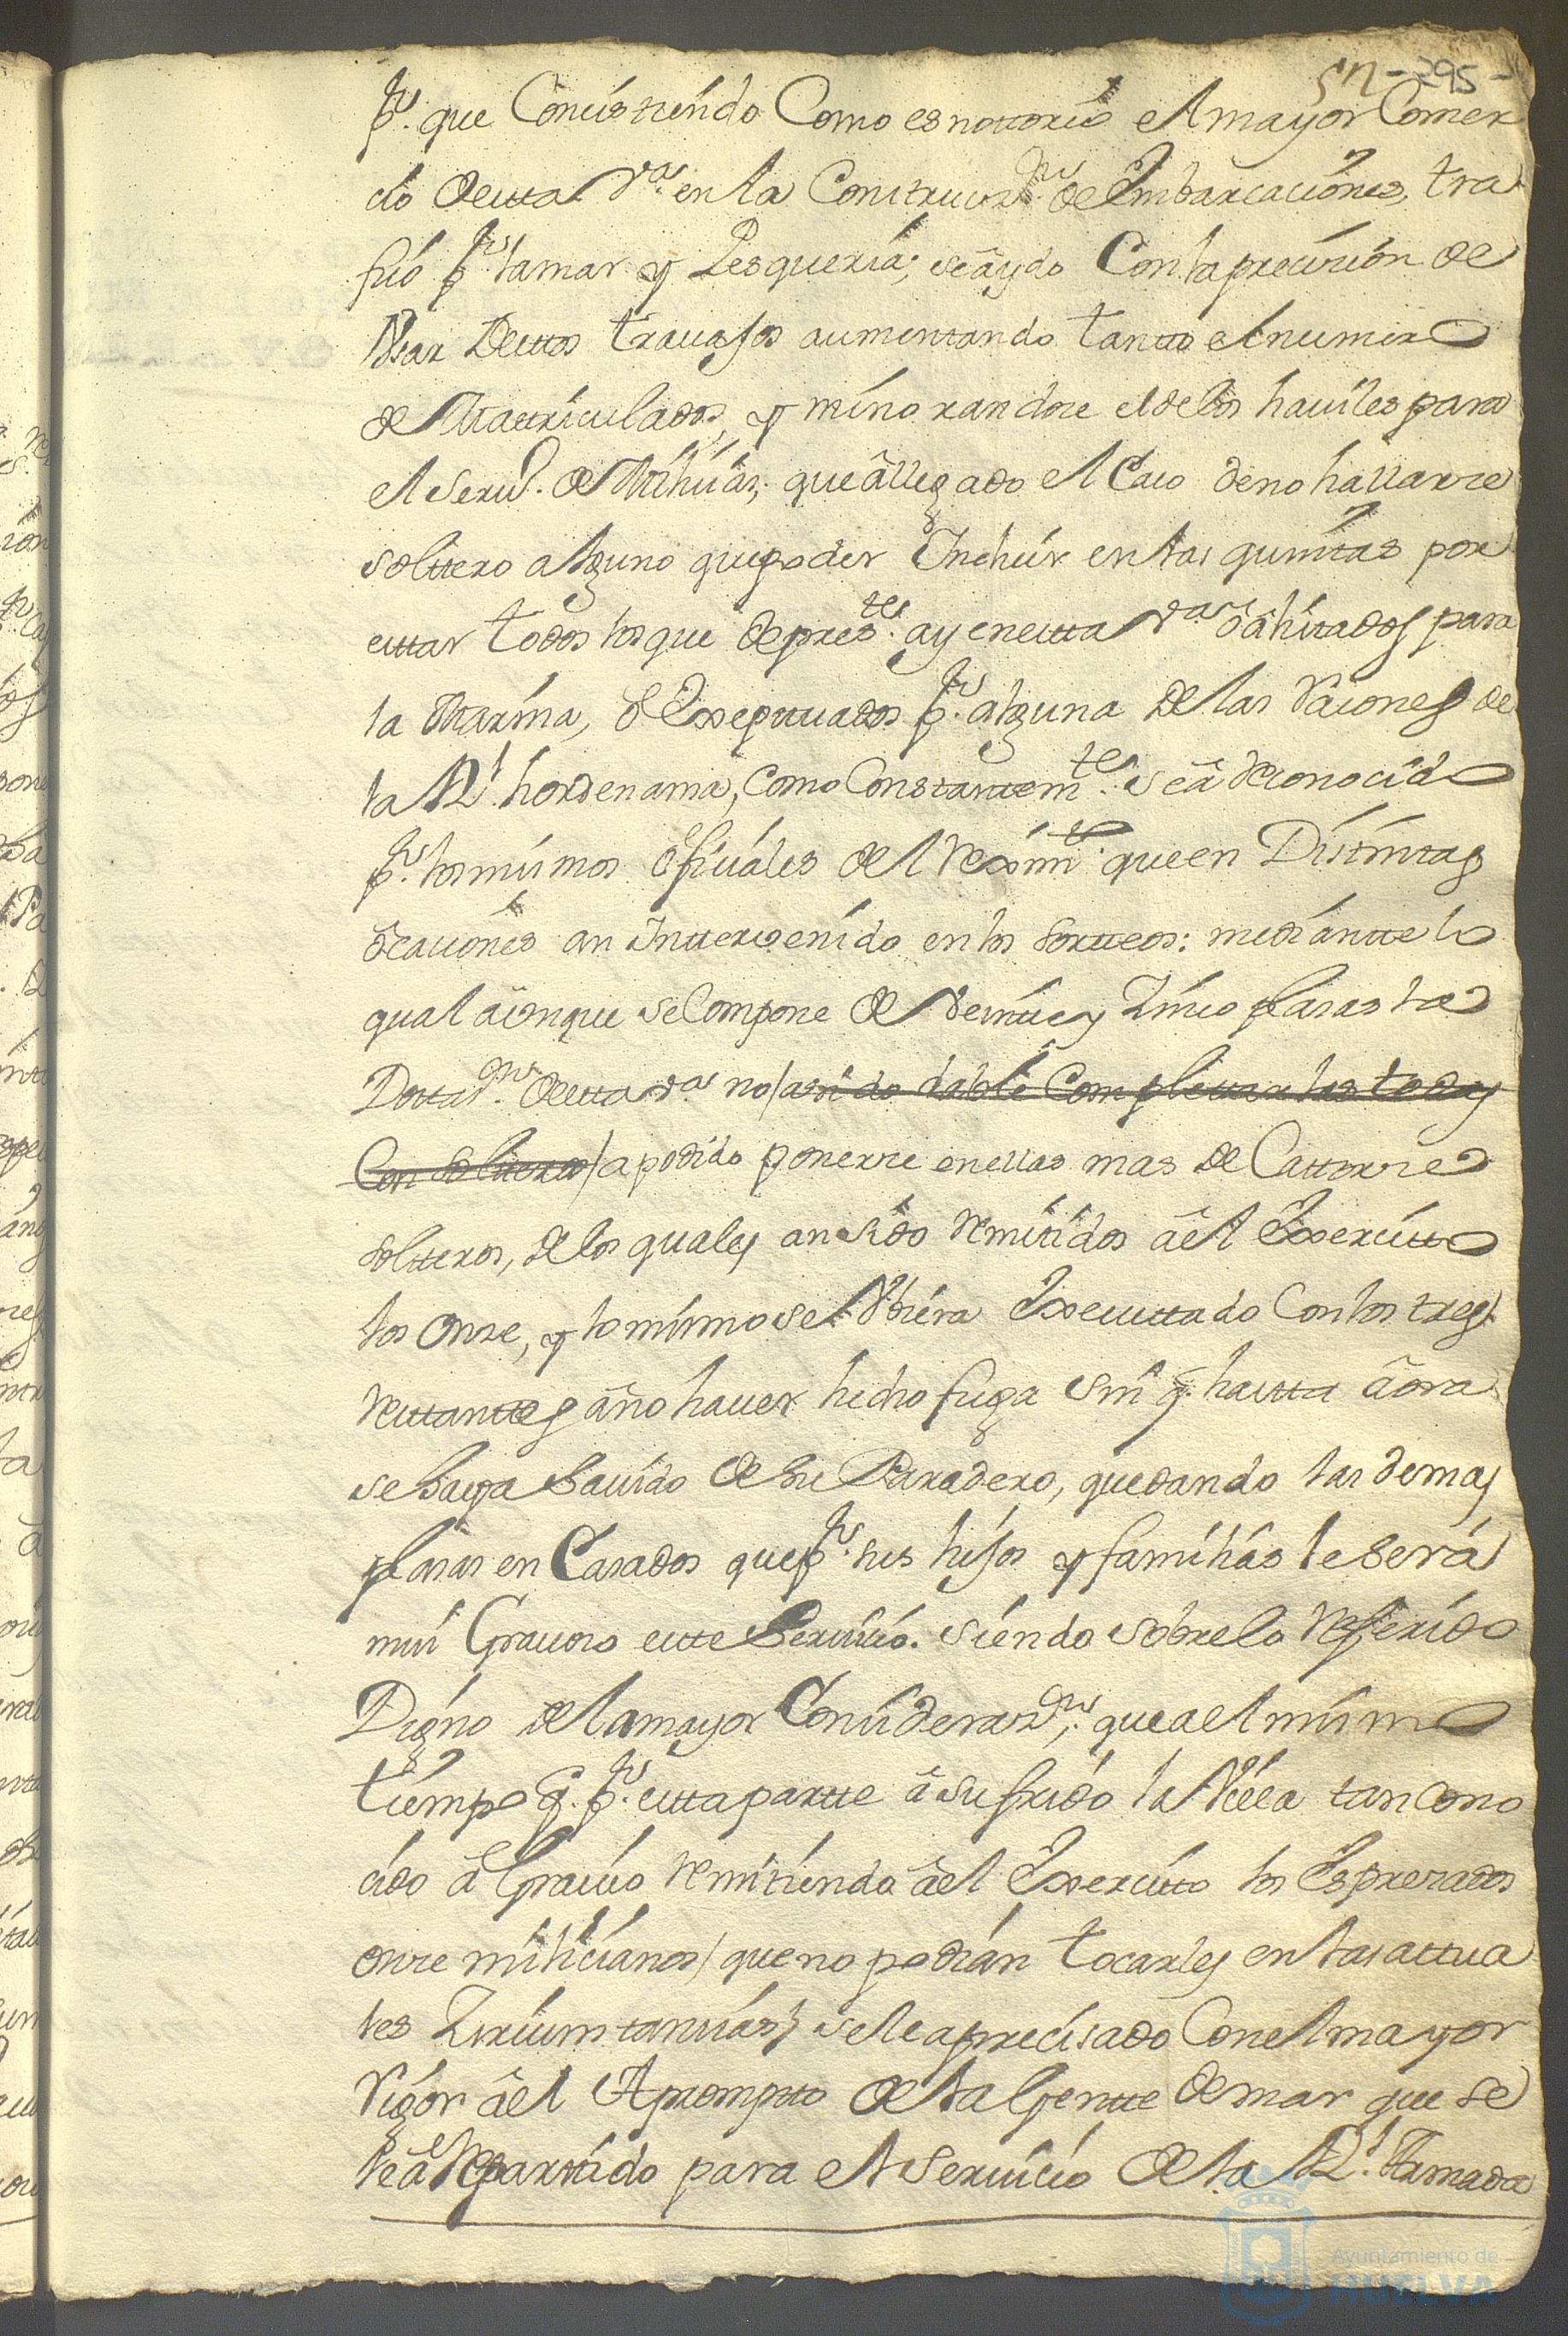 sn - 295 -
pr. que Concistiendo Como es nottorio el mayor Comer
cio de esta va. en la Construczn. de Embarcaciones, tra
fico pr. la mar y Pesqueria; se a ydo Con la precission de
Usar de estos travajos aumentando tanto el numero
de Matriculados, y minorandose el de los haviles para
el servo. de Milicias; que a llegado el Caso de no hallarse
soltero alguno que poder Incluir en las quintas por
estar todos los que de preste. ay en esta va. o alistados para
la Marina, o Exseptuados pr. alguna de las Raciones de
la Rl. hordenansa, como Constantemte. se a reconocido
pr. los mismos oficiales del Reximto. que en Distintas
ocaciones an Intterbenido en los sortteos: mediantte lo
qual aunque se Compone de veintte y Zinco plasas la
Dottazn. de esta va. no /a sido dable Complettarlas todas
Con solteros/ a podido ponerse en ellas mas de Cattorse
soltteros, de los quales an sido remitidos a el Exercitto
los onse, y lo mismo se Ubiera Executtado Con los tres
restanttes a no haver hecho fuga sin q. hasta aora
se haya Savido de su Paradero, quedando las demas
plasas en Casados que pr. sus hijos y familias le será
mui Gravoso este Servicio. siendo sobre lo refferido
Digno de la mayor Considerazn.; que a el mismo
tiempo q. pr. esta partte a sufrido la Villa tan cono
cido agravio remitiendo a el Exercitto los Espresados
onse milicianos/ que no podian tocarles en las actua
les Zircumstancias/ se le a precisado Con el mayor
rigor a el Apromptto de la Gentte de mar que se
le a repartido para el Servicio de la Rl. Armada
Ayuntamiento de
HUELVA